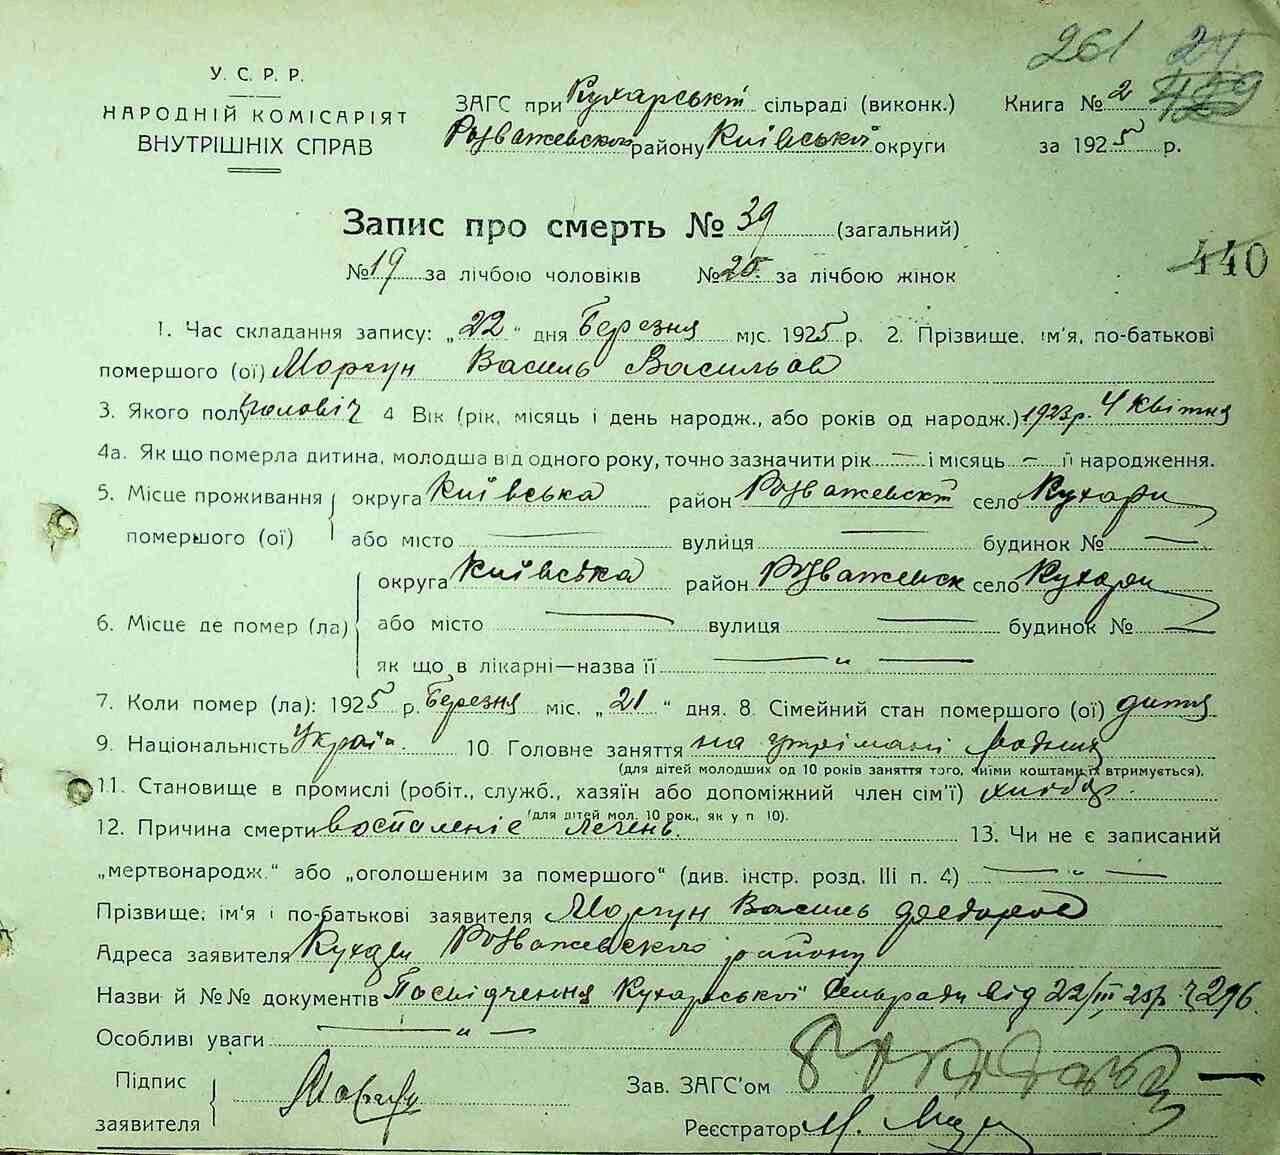 261 24
У. С. Р. Р.
НАРОДНІЙ КОМІСАРІЯТ
ВНУТРІШНІХ СПРАВ
ЗАГС при Кухарські сільраді (виконк.)
Розважевского району Київської округи
Книга № 2
за 1925 р.
Запис про смерть № 39 (загальний)
№ 19 за лічбою чоловіків № 20 за лічбою жінок
440
1. Час складання запису: „22" дня Березня міс. 1925 р. 2. Прізвище, ім'я, по-батькові
помершого (ої) Моргун Василь Васильов
3. Якого полу чоловіч 4 Вік (рік, місяць і день народж., або років од народж.) 1923 р. 4 квітня
4а. Як що померла дитина, молодша від одного року, точно зазначити рік — і місяць — її народження.
5. Місце проживання помершого (ої) округа Київська район Розважевскі село Кухари
або місто — вулиця — будинок № —
6. Місце де помер (ла) округа Київська район Розважевск село Кухари
або місто — вулиця — будинок № —
як що в лікарні—назва її — „ —
7. Коли помер (ла): 1925 р. Березня міс. „21" дня. 8. Сімейний стан помершого (ої) дитя
9. Національність Україн. 10. Головне заняття на утрімані Родини
(для дітей молодших од 10 років заняття того, чиїми коштами їх втримується).
11. Становище в промислі (робіт., служб., хазяїн або допоміжний член сім'ї) хлібор.
(для дітей мол. 10 рок., як у п 10).
12. Причина смерти воспаленіє лёгень. 13. Чи не є записаний
„мертвонародж." або „оголошеним за помершого" (див. інстр. розд. III п. 4) — „ —
Прізвище, ім'я і по-батькові заявителя Моргун Василь Федоров
Адреса заявителя Кухари Розважевского району
Назви й №№ документів Посвідчення Кухарської Сельради від 22/III 25 р. ч 296.
Особливі уваги — „ —
Підпис заявителя
Зав. ЗАГС'ом
Реєстратор М.